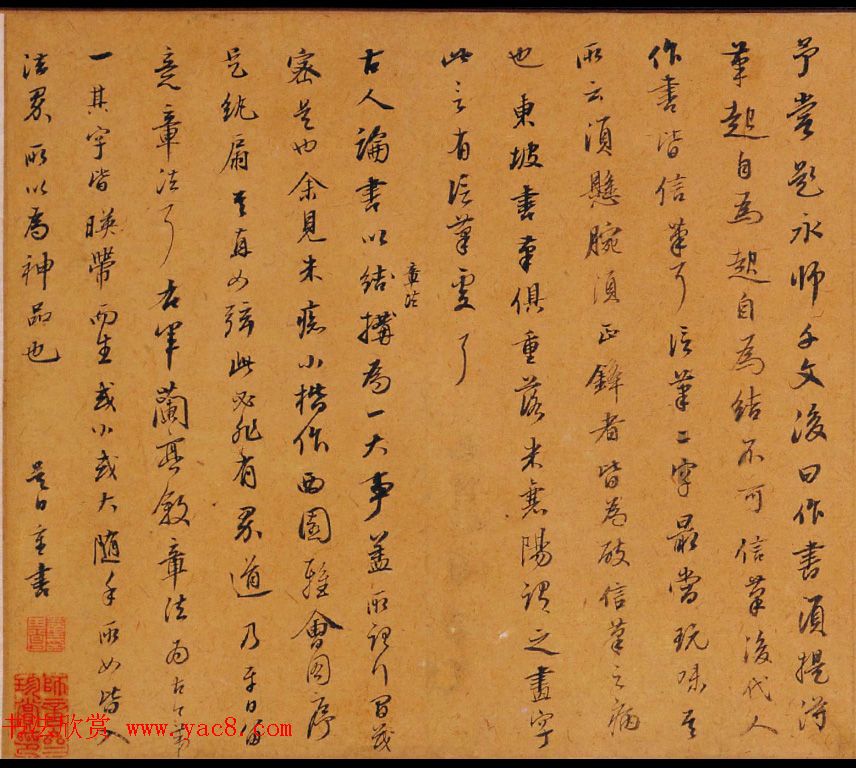 予尝题永师千文後曰作書須提得
筆起自為起自為結不可信筆後代人
作書皆信筆了信筆二字最當玩味吾
所云須懸腕須正鋒者皆為破信筆之病
也東坡書筆俱重落米襄陽謂之畫字
此言有信筆處了
古人論書以章法結搆為一大事蓋所謂行間茂
密是也余見米癡小楷作西園雅會圖序
是紈扇其直如弦此必非有界道乃平日留
意章法了右軍蘭亭敘章法為古今第
一其字皆暎帶而生或小或大随手所如皆入
法界所以為神品也
是日重書
書法欣赏 www.yac8.com